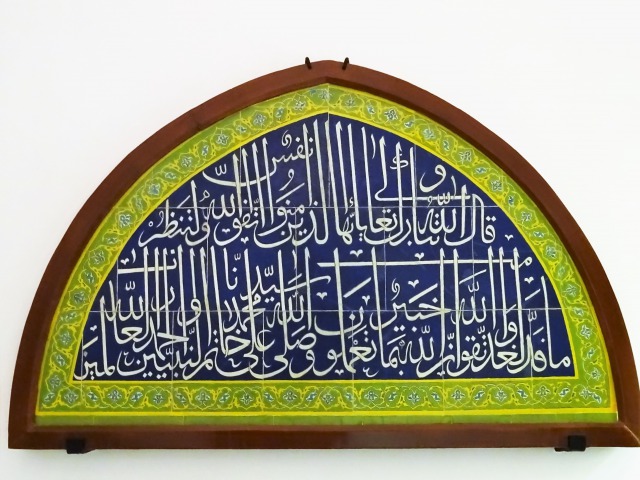 قال الله تبارك وتعالى يا أيها الذين آمنوا اتقوا الله ولتنظر نفس
ما قدمت لغد واتقوا الله إن الله خبير بما تعملون وصلى الله على سيدنا محمد خاتم النبيين والحمد لله رب العالمين